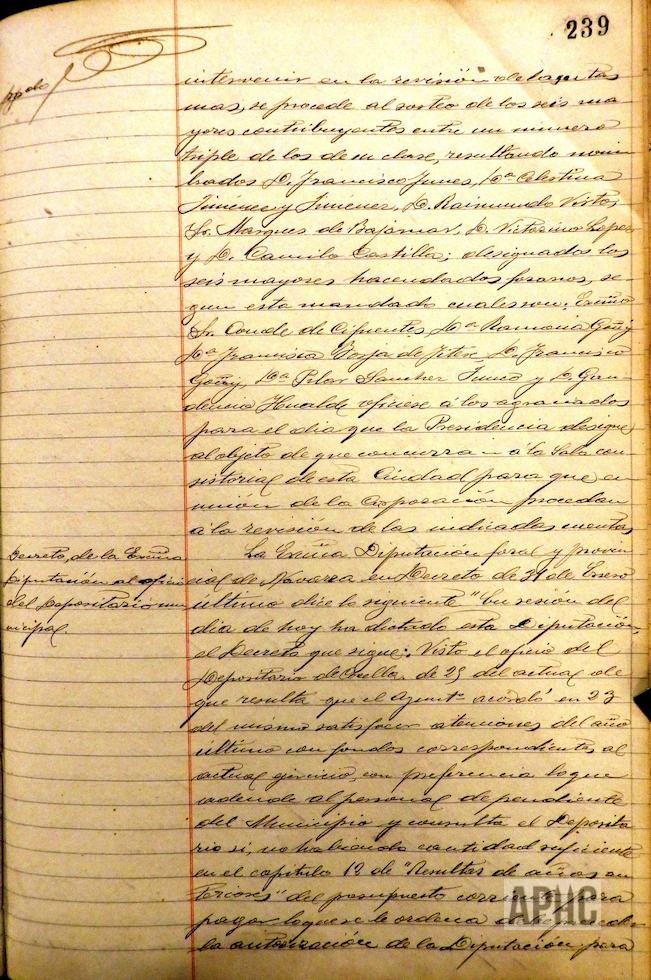 239
intervenir en la revisión de las
mas, se procede al sorteo de los seis ma
yores contribuyentes entre un número
triple de los de su clase, resultando nom
brados D. Francisco Junes, Dª Celestina
Jimenez y Jimenez, D. Raimundo
Sr. Marques de Bajamar, D. Victorino Lopez
y D. Camilo Castilla; designados los
seis mayores hacendados foranos, se
gun esta mandado cuales son: Excmo
Sr. Conde de Cifuentes, Dª Ramona Goñi
Dª Francisca Borja de D. Francisco
Goñi, Dª Pilar Sanchez y D. Gau
dencio Hualde oficiese á los agraciados
para el dia que la Presidencia designe
al objeto de que concurran á la Sala con
sistorial de esta Ciudad para que en
unión de la Corporación procedan
á la revisión de las indicadas cuentas
Decreto, de la Excma
Diputación al oficio
del Depositario mu
nicipal.
La Excma Diputación foral y provin
cial de Navarra en Decreto de 31 de Enero
último dice lo siguiente "En sesión del
dia de hoy ha dictado esta Diputación,
el Decreto que sigue: Visto el oficio del
Depositario de de 25 del actual de
que resulta que el Ayuntº acordó en 23
del mismo satisfacer atenciones del año
último con fondos correspondientes al
actual ejercicio, con preferencia lo que
adeude al personal dependiente
del Municipio y consulta el Deposita
rio si, no habiendo cantidad suficiente
en el capitulo 12 de "Resultas de años an
teriores" del presupuesto corriente para
pagar lo que se le ordena
la autorización de la Diputación para
APHC